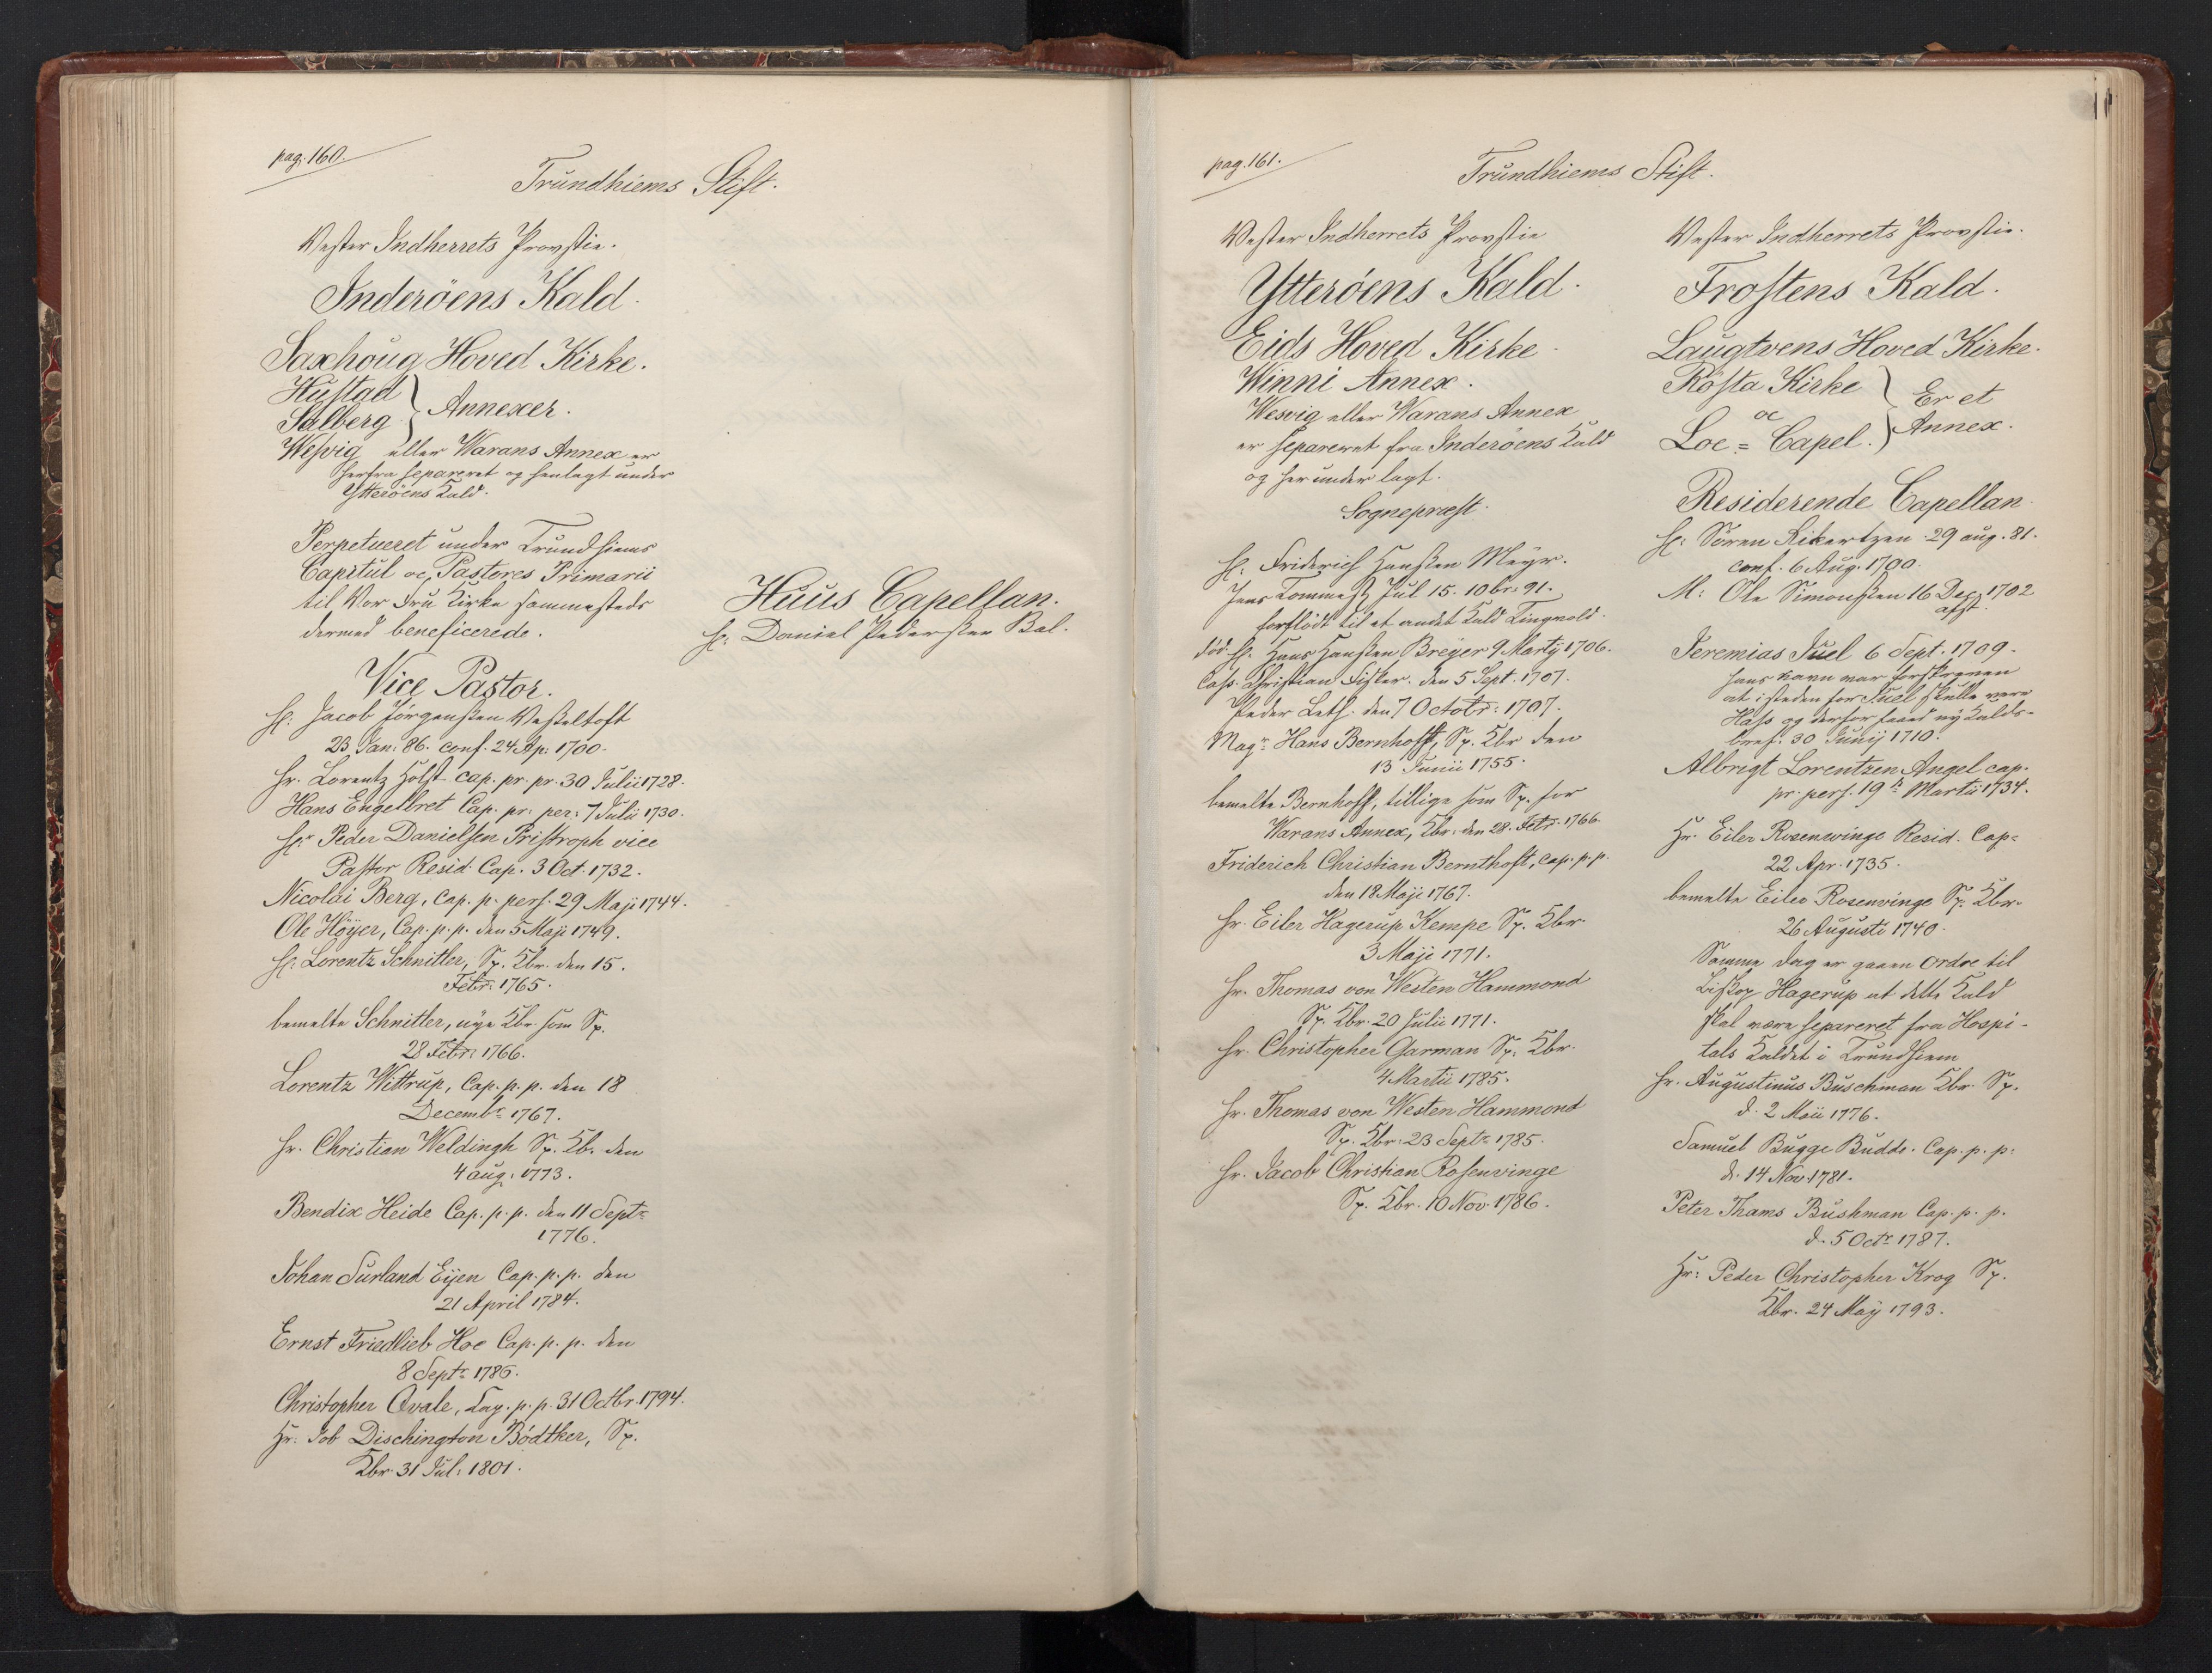 pag. 160.
Trundhiems Stift.
Vester Indherrets Provstie.
Inderöens Kald.
Saxhoug Hoved Kirke.
Hustad
Salberg } Annexer.
Wesvig eller Warans Annex er
herfra separeret og henlagt under
Ytteröens Kald.
Perpetueret under Trundhiems
Capitul oc Pastores Primarii
til Vor Fru Kirke sammesteds
dermed beneficerede.
Vice Pastor.
Hr. Jacob Jörgensen Wesseltoft
23 Jan: 86. conf. 24 Ap: 1700.
Hr. Lorentz Holst cap. pr. pr. 30 Julii 1728.
Hans Engelbret Cap. pr. per: 7 Julii 1730.
Hr. Peder Danielsen Tristroph vice
Pastor Resid: Cap. 3 Oct. 1732.
Nicolai Berg, Cap. p. pers. 29 Maji 1744.
Ole Höyer, Cap. p. p. den 5 Maji 1749.
Hr. Lorentz Schnitler, Sp. Kbr. den 15.
Febr: 1765.
bemelte Schnitler, nye Kbr. som Sp.
28 Febr: 1766.
Lorentz Wittrup, Cap. p. p. den 18
Decembr 1767.
Hr. Christian Weldingh Sp. Kb. den
4 aug: 1773.
Bendix Heide Cap. p. p. den 11 Septr
1776.
Johan Surland Eijen Cap. p. p. den
21 April 1784.
Ernst Friedlieb Hoe Cap. p. p. den
8 Septr 1786.
Christopher Qvale, Cap. p. p. 31 Octbr. 1794.
Hr. Job Dischington Bödtker, Sp.
Kbr. 31 Jul: 1801.
Huus Capellan.
Hr. Daniel Pedersen Bal.
pag. 161.
Trundhiems Stift.
Vester Indherrets Provstie
Ytteröens Kald.
Eids Hoved Kirke.
Winni Annex.
Wesvig eller Warans Annex
er separeret fra Inderöens Kald
og her under lagt.
Sognepræst.
Hr. Friderich Hansen Meyr.
Jens Tommes Jul 15. 10br: 91.
forflödt til et andet Kald Tingvold.
död. Hr. Hans Hansen Breyer 9 Marty 1706.
Cass. Christian Fisker. den 5 Sept. 1707.
Peder Leth. den 7 Octobr: 1707.
Magr Hans Bernhoft, Sp. Kbr den
13 Junii 1755.
bemelte Bernhoft, tillige som Sp. for
Warans Annex, Kbr: den 28. Febr. 1766.
Friderich Christian Bernthoft, Cap. p. p.
den 18 Maji 1767.
Hr. Eiler Hagerup Kempe Sp. Kbr.
3 Maji 1771.
Hr. Thomas von Westen Hammond
Sp. Kbr. 20 Julii 1771.
Hr. Christopher Garman Sp. Kbr.
4 Martii 1785.
Hr. Thomas von Westen Hammond
Sp. Kbr. 23 Septr 1785.
Hr. Jacob Christian Rosenvinge
Sp. Kbr. 10 Nov. 1786.
Vester Indherrets Provstie.
Frostens Kald.
Laugtvens Hoved Kirke.
Rösta Kirke
oc
Loe = Capel. } Er et
Annex.
Residerende Capellan.
Hr. Sören Rikertzen 29 aug. 81.
conf. 6 Aug. 1700.
M: Ole Simonsen 16 Dec. 1702
afst.
Jeremias Juel 6 Sept. 1709.
hans navn var forskreven
at isteden for Juel skulle være
Hass og derfor faaed ny Kalds-
bref. 30 Junij 1710.
Albrigt Lorentzen Angel cap.
pr. pers. 19de Martii 1734.
Hr. Eiler Rosenwinge Resid. Cap.
22 Apr. 1735.
bemelte Eiler Rosenvinge Sp. Kbr.
26 Augusti 1740.
Samme dag er gaaen Ordre til
Biskop Hagerup at dette Kald
skal være separeret fra Hospi-
tals Kaldet i Trundhiem
Hr. Augustinus Buschman Kbr. Sp.
d. 2 Maii 1776.
Samuel Bugge Budde. Cap. p. p.
d. 14 Nov 1781.
Peter Thams Bushman Cap. p. p.
d. 5 Octr 1787.
Hr: Peder Christopher Krog Sp.
Kbr. 24 May 1793.